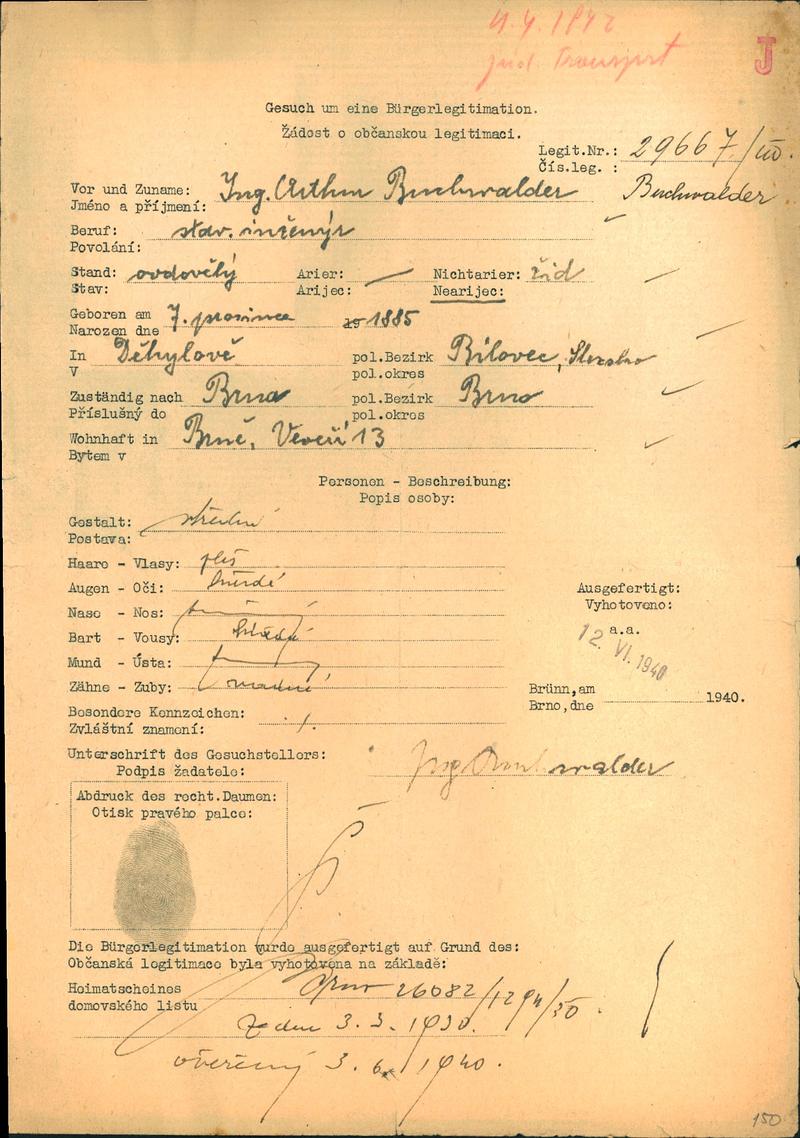 4.4.1942
žid. Transport
J
Gesuch um eine Bürgerlegitimation.
Žádost o občanskou legitimaci.
Legit.Nr.: 29667/III.
Čís.leg. :
Vor und Zuname: Ing. Arthur Buchwalder Buchwalder
Jméno a příjmení:
Beruf: stav. inženýr
Povolání:
Stand: ovdovělý Arier: Nichtarier: žid
Stav: Arijec: Nearijec:
Geboren am 7. prosince 1885
Narozen dne
In Děhylově pol.Bezirk Bílovec, Slezsko
V pol.okres
Zuständig nach Brna pol.Bezirk Brno
Příslušný do pol.okres
Wohnhaft in Brně, Veveří 13
Bytem v
Personen - Beschreibung:
Popis osoby:
Gestalt: střední
Postava:
Haare - Vlasy: pleš
Augen - Oči: hnědé
Nase - Nos:
Bart - Vousy: hladý
Mund - Ústa:
Zähne - Zuby:
Ausgefertigt:
Vyhotoveno:
a.a.
12. VI. 1940
Brünn,am 1940.
Brno,dne
Besondere Kennzeichen:
Zvláštní znamení:
Unterschrift des Gesuchstellers: Ing Buchwalder
Podpis žadatele:
Abdruck des recht.Daumen:
Otisk pravého palce:
Die Bürgerlegitimation wurde ausgefertigt auf Grund des:
Občanská legitimace byla vyhotovena na základě:
Heimatscheines Brno 26082/1294/30.
domovského listu
Ze dne 3. 3. 1930.
ověřený 3. 6. 1940.
150